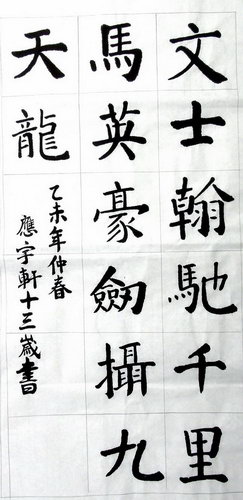 文士翰馳千里
馬英豪劒攝九
天龍
乙未年仲春
應宇軒十三歲書